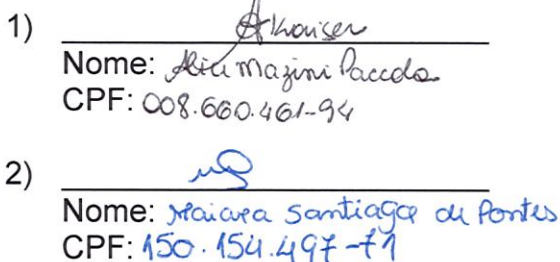 1)
Nome: Mazini Paccola
CPF: 008.660.461-94
2)
Nome: Maiara Santiago de Pontes
CPF: 150.154.497-71